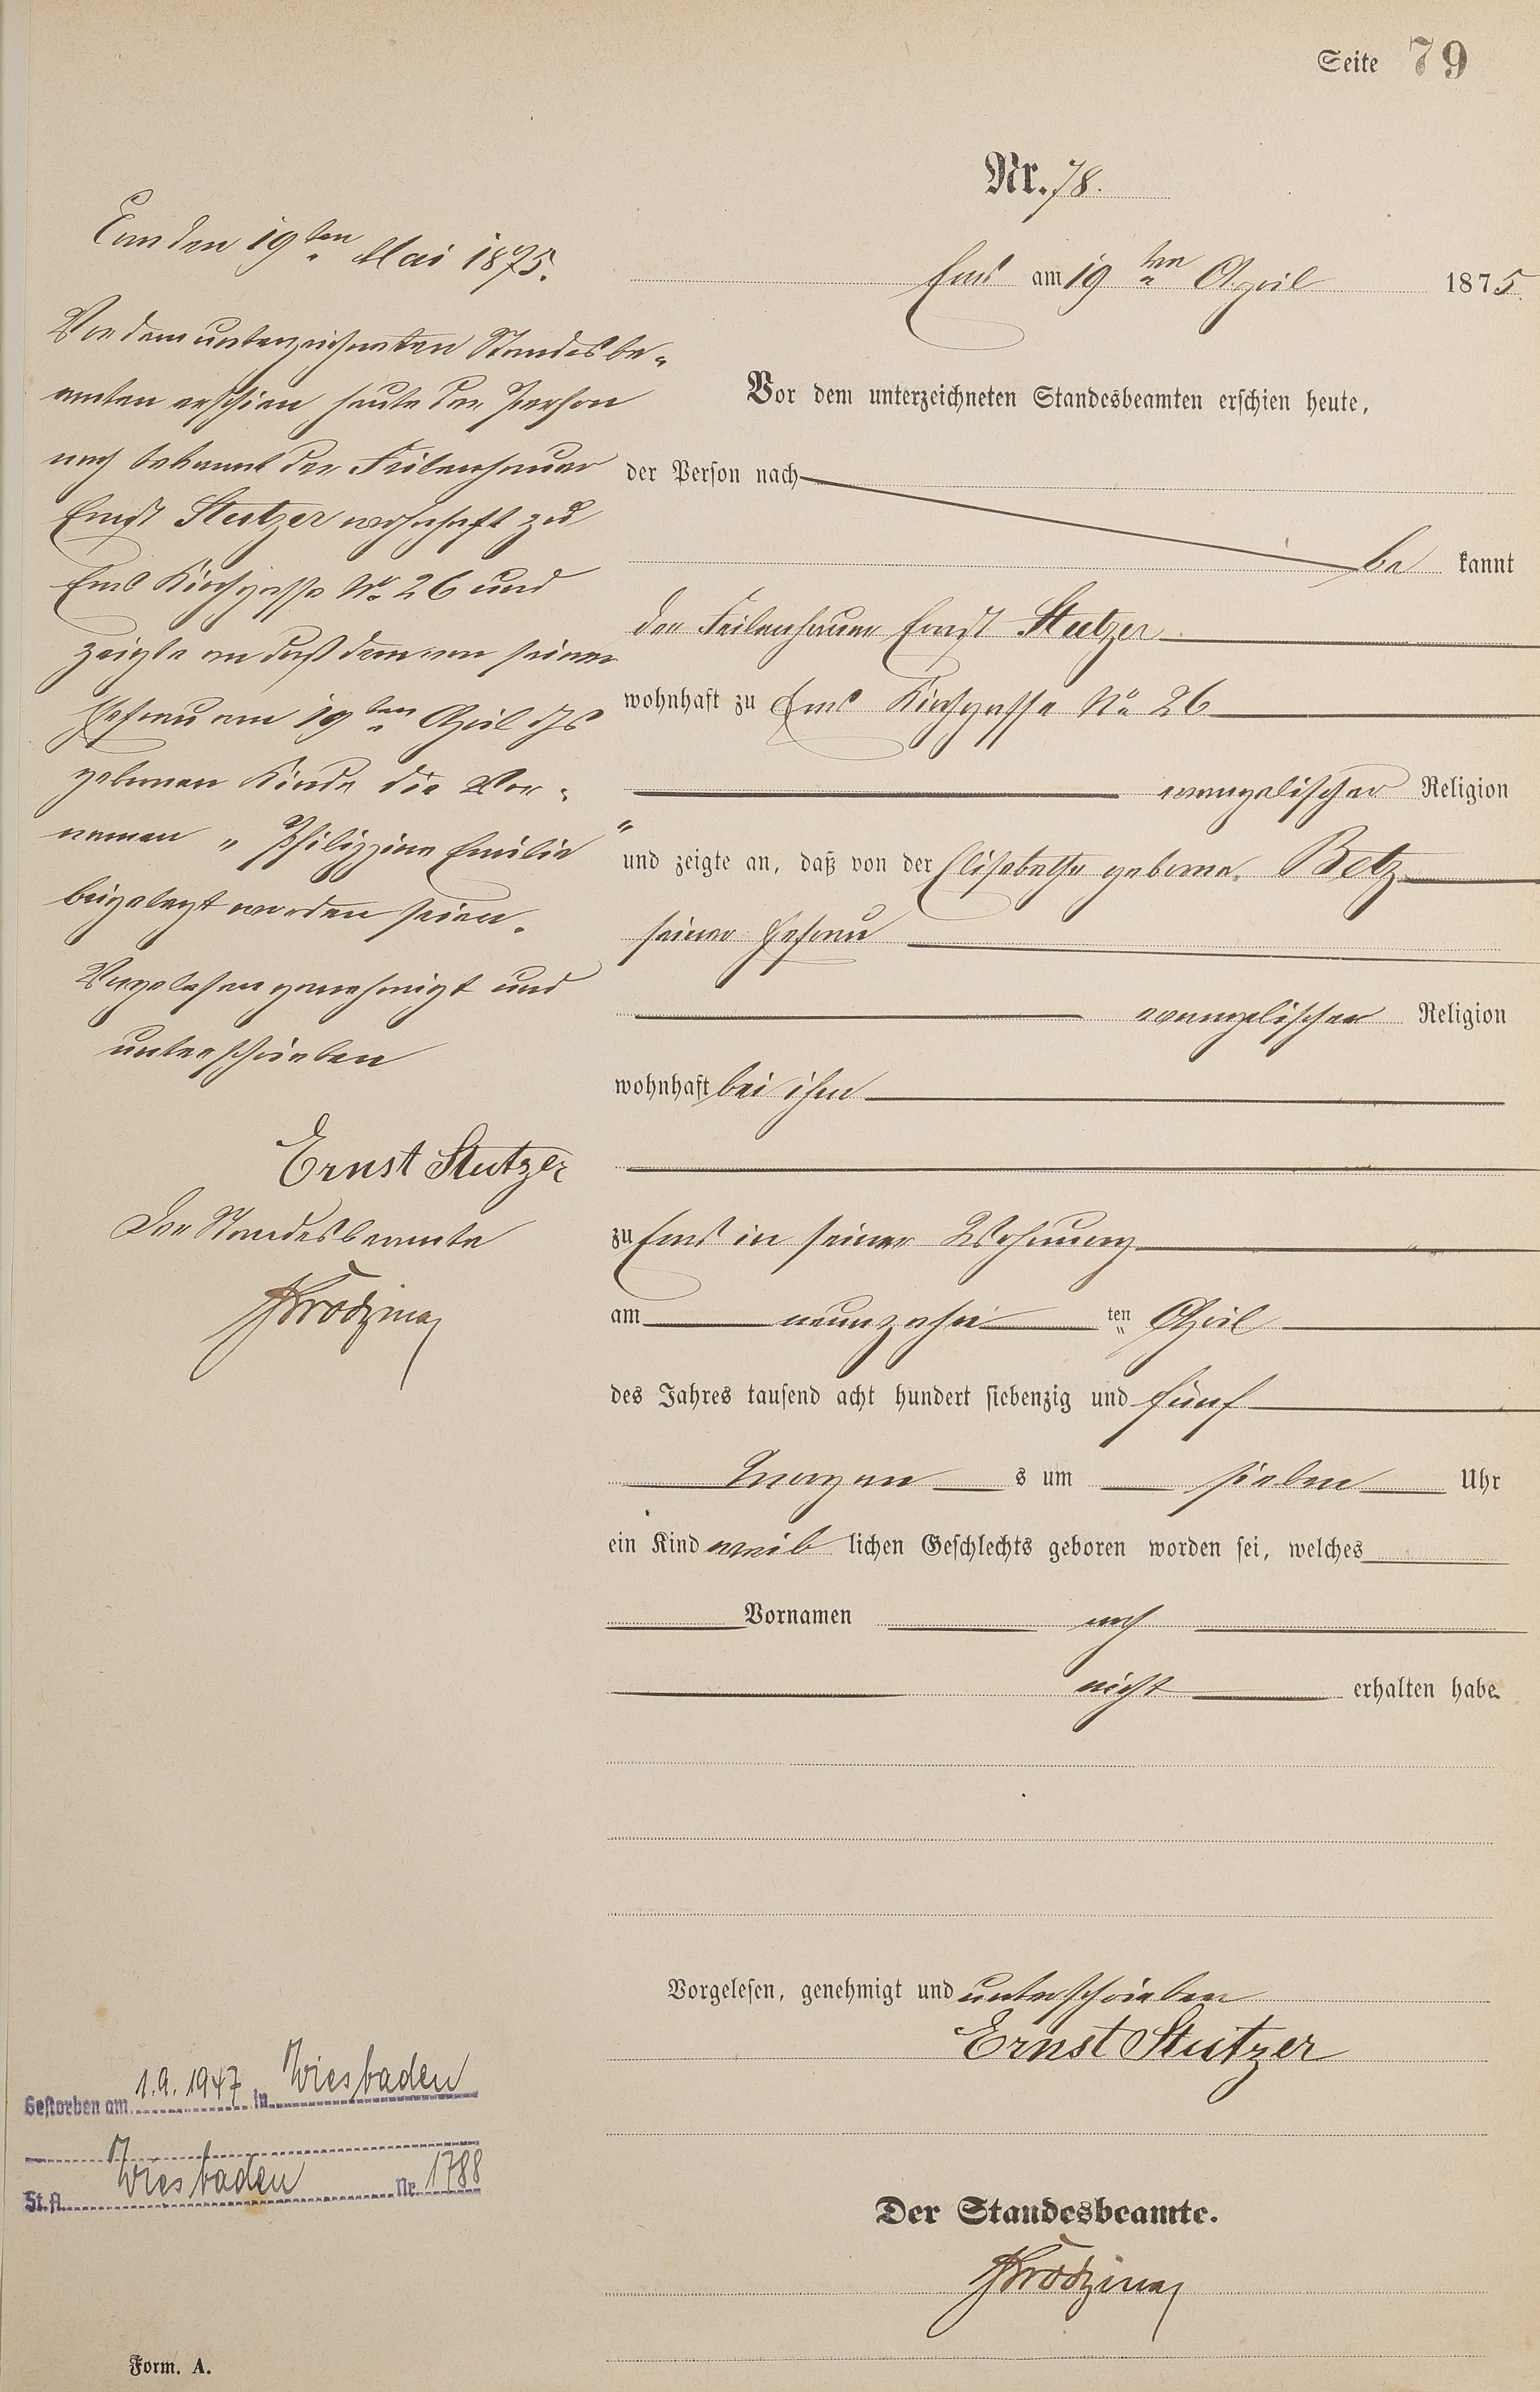 Seite 79
Nr. 78.
Ems am 19ten April 1875.
Vor dem unterzeichneten Standesbeamten erschien heute,
der Person nach
be kannt
der Feilenhauer Ernst Stutzer
wohnhaft zu Ems Kirchgasse No 26
evangelischer Religion
und zeigte an, daß von der Elisabethe geborne Betz
seiner Ehefrau
evangelischer Religion
wohnhaft bei ihm
zu Ems in seiner Wohnung
am neunzehn ten April
des Jahres tausend acht hundert siebenzig und fünf
Morgen s um sieben Uhr
ein Kind weib lichen Geschlechts geboren worden sei, welches
Vornamen noch
nicht erhalten habe
Vorgelesen, genehmigt und unterschrieben
Ernst Stutzer
Der Standesbeamte.
Ems den 19ten Mai 1875.
Vor dem unterzeichneten Standesbe-
amten erschien heute der Person
nach bekannt der Feilenhauer
Ernst Stutzer wohnhaft zu
Ems Kirchgasse No 26 und
zeigte an daß dem von seiner
Ehefrau am 19ten April ds Js
gebornen Kinde die Vor-
namen "Philippine Emilie"
beigelegt worden seien.
Vorgelesen genehmigt und
unterschrieben
Ernst Stutzer
Der Standesbeamte
Gestorben am 1.9.1947 in Wiesbaden
St.A. Wiesbaden Nr. 1788
Form. A.